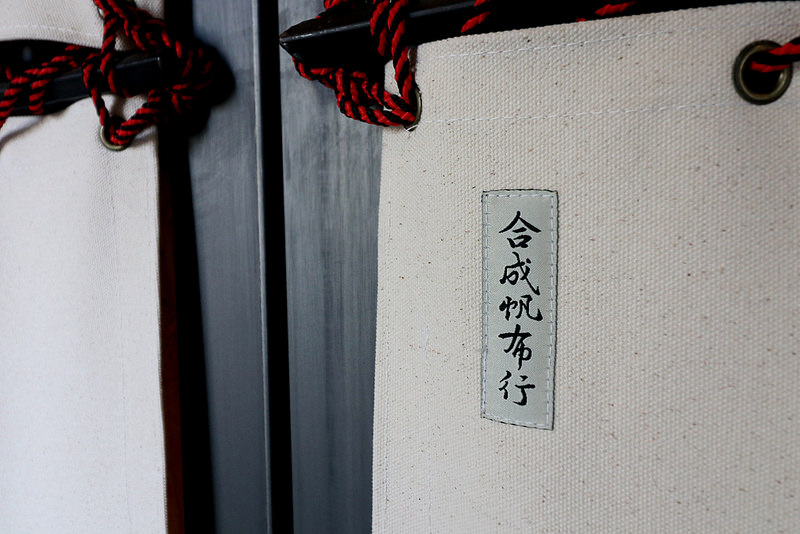 合成帆布行